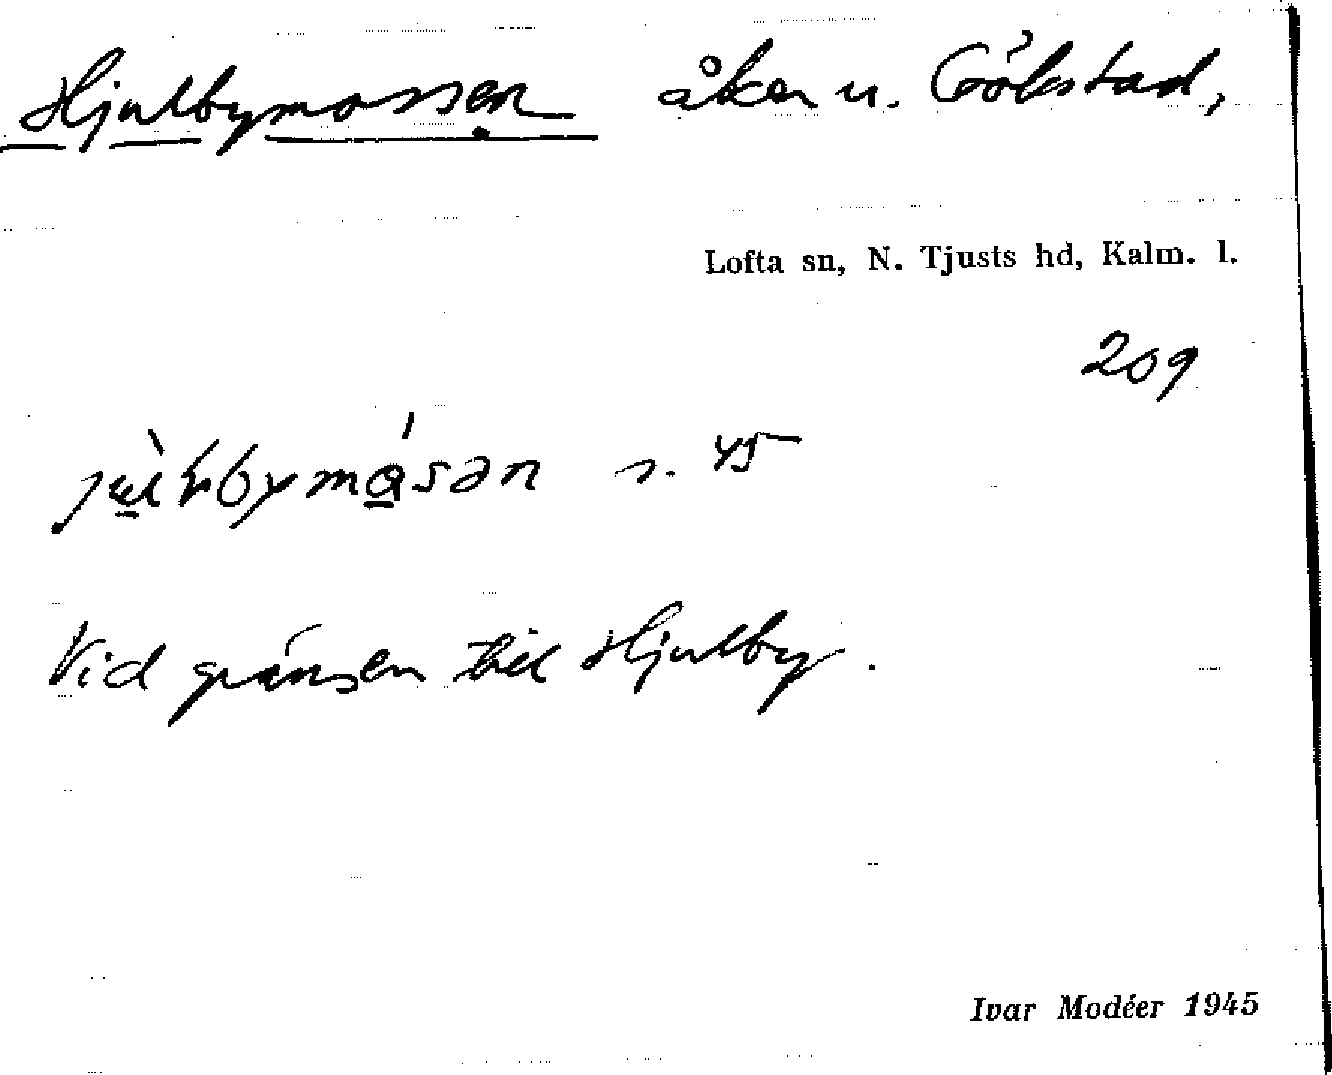 Hjulbymossen åker u. Gökstad,
Lofta sn, N. Tjusts hd, Kalm. l.
209
s. 45
Vid gränsen till Hjulby.
Ivar Modéer 1945